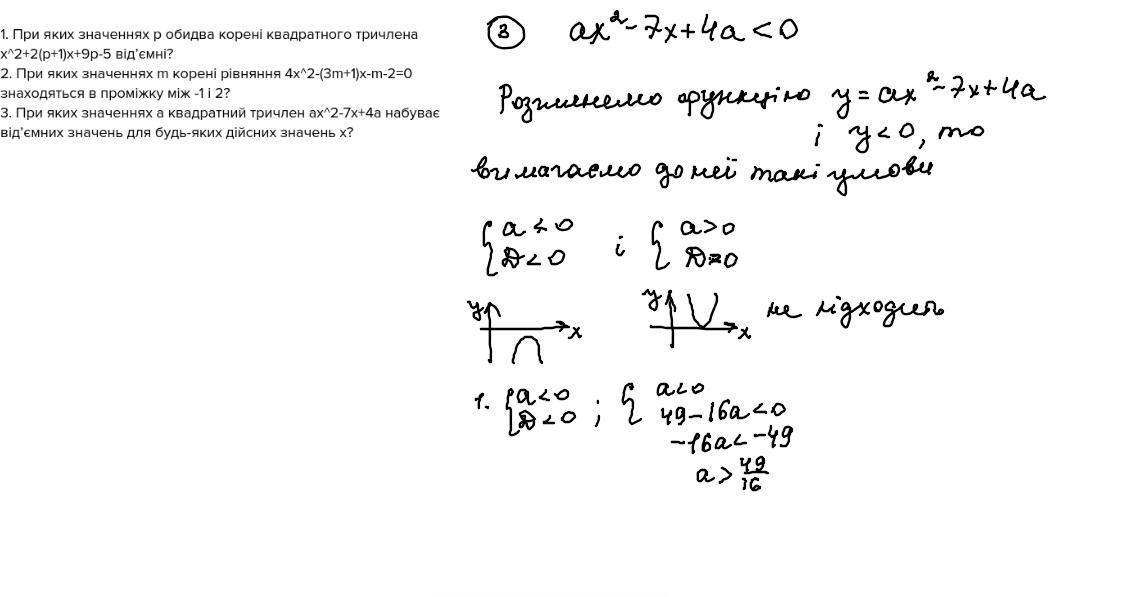 1. При яких значеннях p обидва корені квадратного тричлена
x^2+2(p+1)x+9p-5 від'ємні?
2. При яких значеннях m корені рівняння 4x^2-(3m+1)x-m-2=0
знаходяться в проміжку між -1 і 2?
3. При яких значеннях a квадратний тричлен ax^2-7x+4a набуває
від'ємних значень для будь-яких дійсних значень x?
3 ax²-7x+4a<0
Розглянемо функцію y=ax²-7x+4a
і y<0, то
вимагаємо до неї такі умови
{a<0 і {a>0
{D<0 {D=0
y x y x не підходить
1. {a<0 ; {a<0
{D<0 49-16a<0
-16a<-49
a>49/16